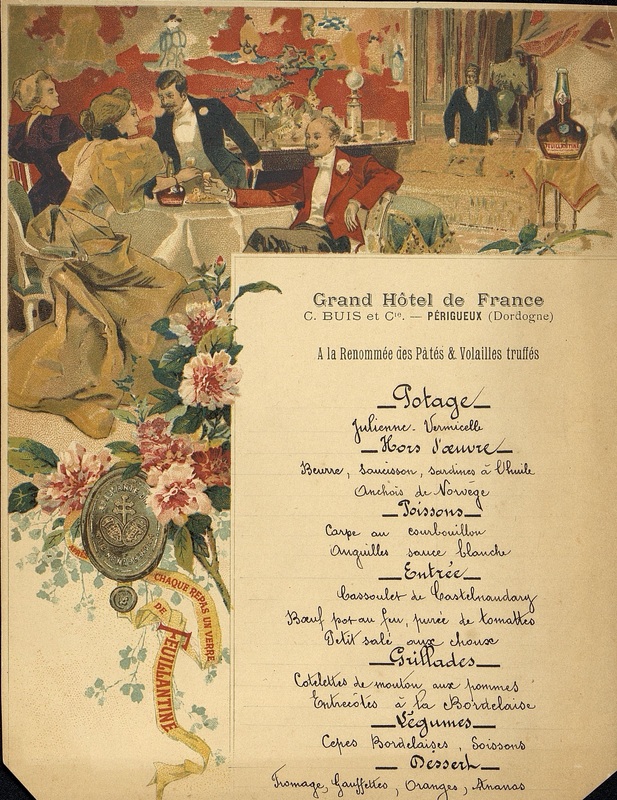 FEUILLANTINE
Grand Hôtel de France
C. BUIS et Cie. — PÉRIGUEUX (Dordogne)
A la Renommée des Pâtés & Volailles truffés
Potage
Julienne. Vermicelle
Hors d'œuvre
Beurre, saucisson, sardines à l'huile
Anchois de Norvège
Poissons
Carpe au courbouillon
Anguilles sauce blanche
Entrée
Cassoulet de Castelnaudary
Bœuf pot au feu, purée de tomattes
Petit salé aux choux
Grillades
Cotelettes de mouton aux pommes
Entrecôtes à la Bordelaise
Légumes
Cepes Bordelaises, Soissons
Dessert
Fromage, Gauffettes, Oranges, Ananas
APRÈS
CHAQUE REPAS UN VERRE
DE
FEUILLANTINE